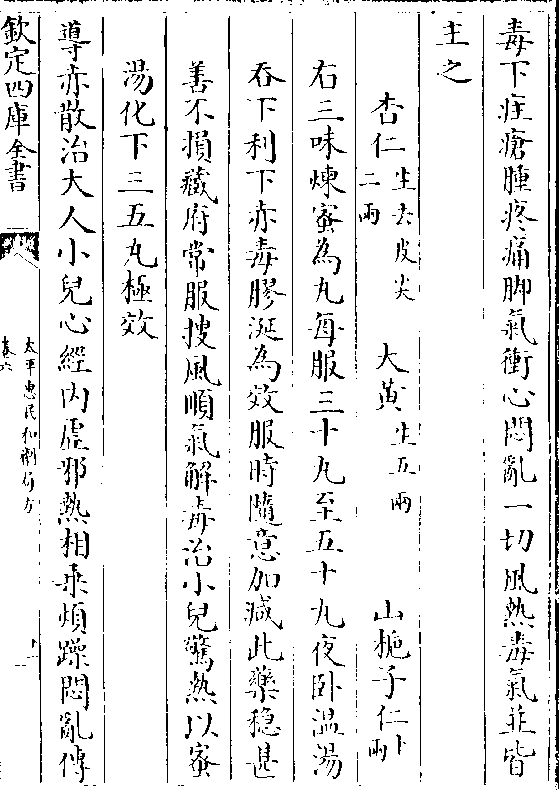 毒下疰瘡腫疼痛脚氣衝心悶亂一切風熱毒氣並皆
主之
杏仁生去皮尖二兩 大黄生五兩 山梔子仁十兩
右三味煉蜜為丸每服三十丸至五十丸夜卧温湯
吞下利下赤毒膠涎為效服時隨意加減此藥穏甚
善不損藏府常服搜風順氣解毒治小兒驚熱以蜜
湯化下三五丸極效
導赤散治大人小兒心經内虚邪熱相乗煩躁悶亂傳
欽定四庫全書
太平惠民和劑局方
卷六